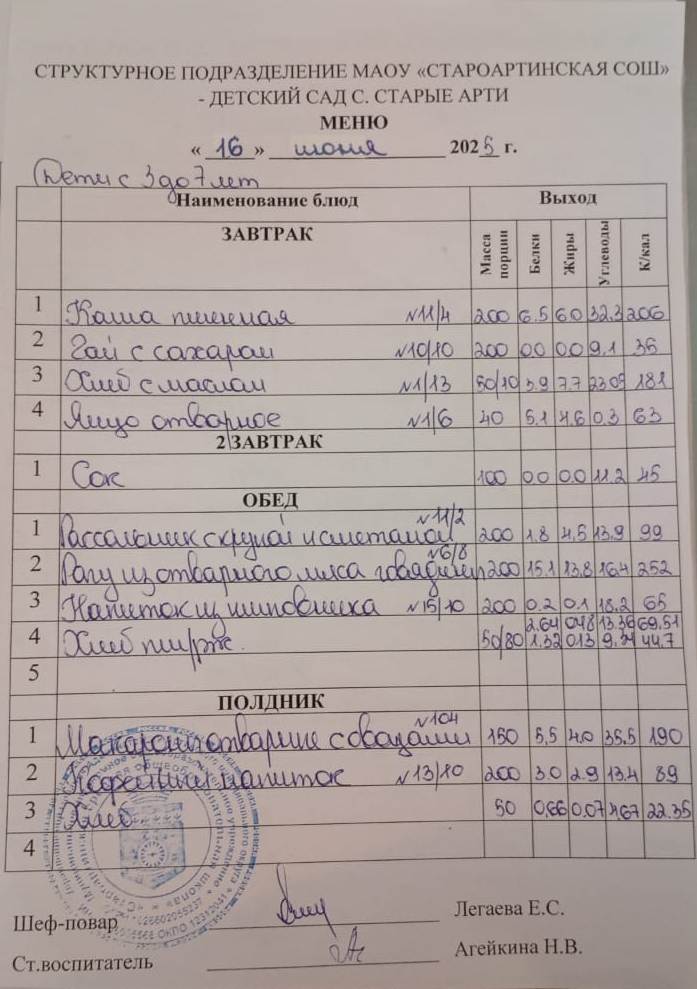 СТРУКТУРНОЕ ПОДРАЗДЕЛЕНИЕ МАОУ «СТАРОАРТИНСКАЯ СОШ»
- ДЕТСКИЙ САД С. СТАРЫЕ АРТИ
МЕНЮ
« 16 » июня 2025 г.
Дети с 3 до 7 лет
Наименование блюд Выход
ЗАВТРАК Масса порции Белки Жиры Углеводы К/кал
1 Каша пшенная №11/4 200 6.5 6.0 32.3 206
2 Чай с сахаром №10/10 200 0.0 0.0 9.1 36
3 Хлеб с маслом №1/13 50/10 3.9 7.7 23.05 181
4 Яйцо отварное №1/6 40 5.1 4.6 0.3 63
2 ЗАВТРАК
1 Сок 100 0.0 0.0 11.2 45
ОБЕД
1 Рассольник с крупой и сметаной №11/2 200 1.8 4.5 13.9 99
2 Рагу из отварного мяса говядины №6/8 200 15.1 13.8 16.4 252
3 Напиток из шиповника №15/10 200 0.2 0.1 18.2 65
2.64 0.48 13.36 69.51
4 Хлеб пш/рж. 50/80 1.32 0.13 9.34 44.7
5
ПОЛДНИК
1 Макароны отварные с овощами №104 150 5,5 4.0 35.5 190
2 Кофейный напиток №13/10 200 3.0 2.9 13.4 89
3 Хлеб 50 0,66 0.07 4,67 22.35
4
Шеф-повар Легаева Е.С.
Ст.воспитатель Агейкина Н.В.